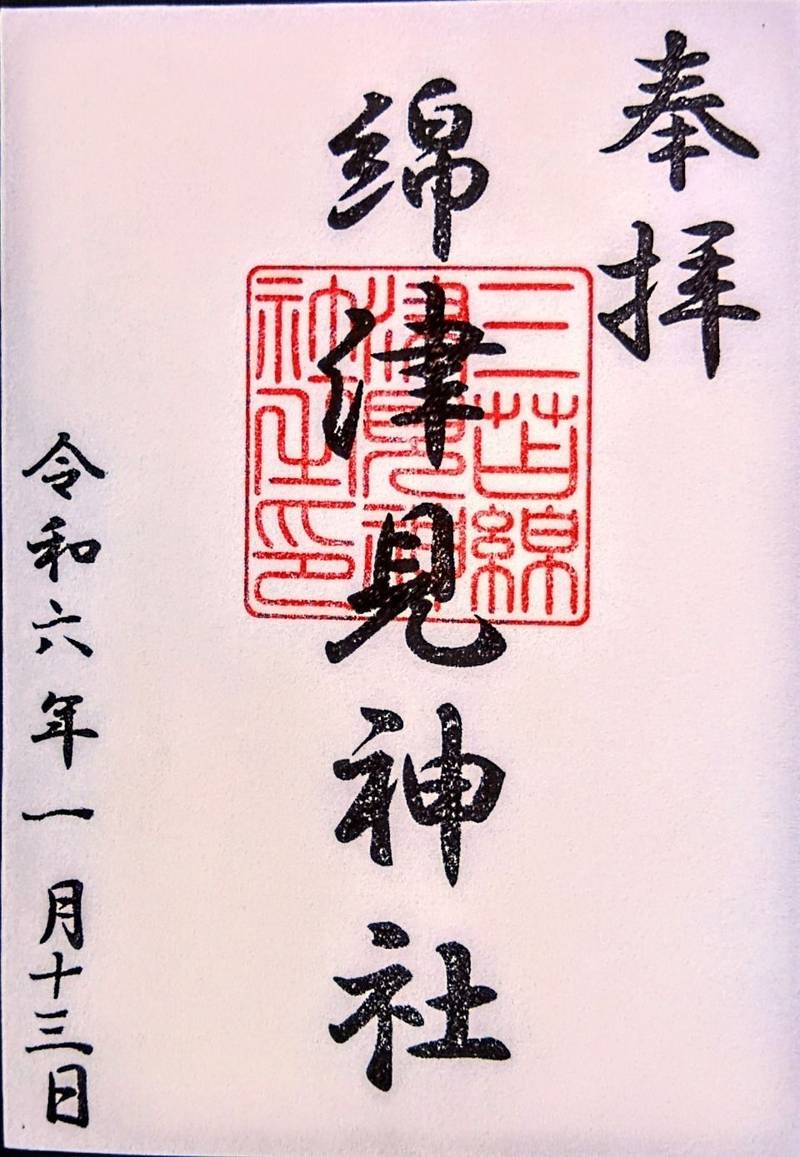 奉拝
綿津見神社
三苫綿
津見神
社之印
令和六年一月十三日